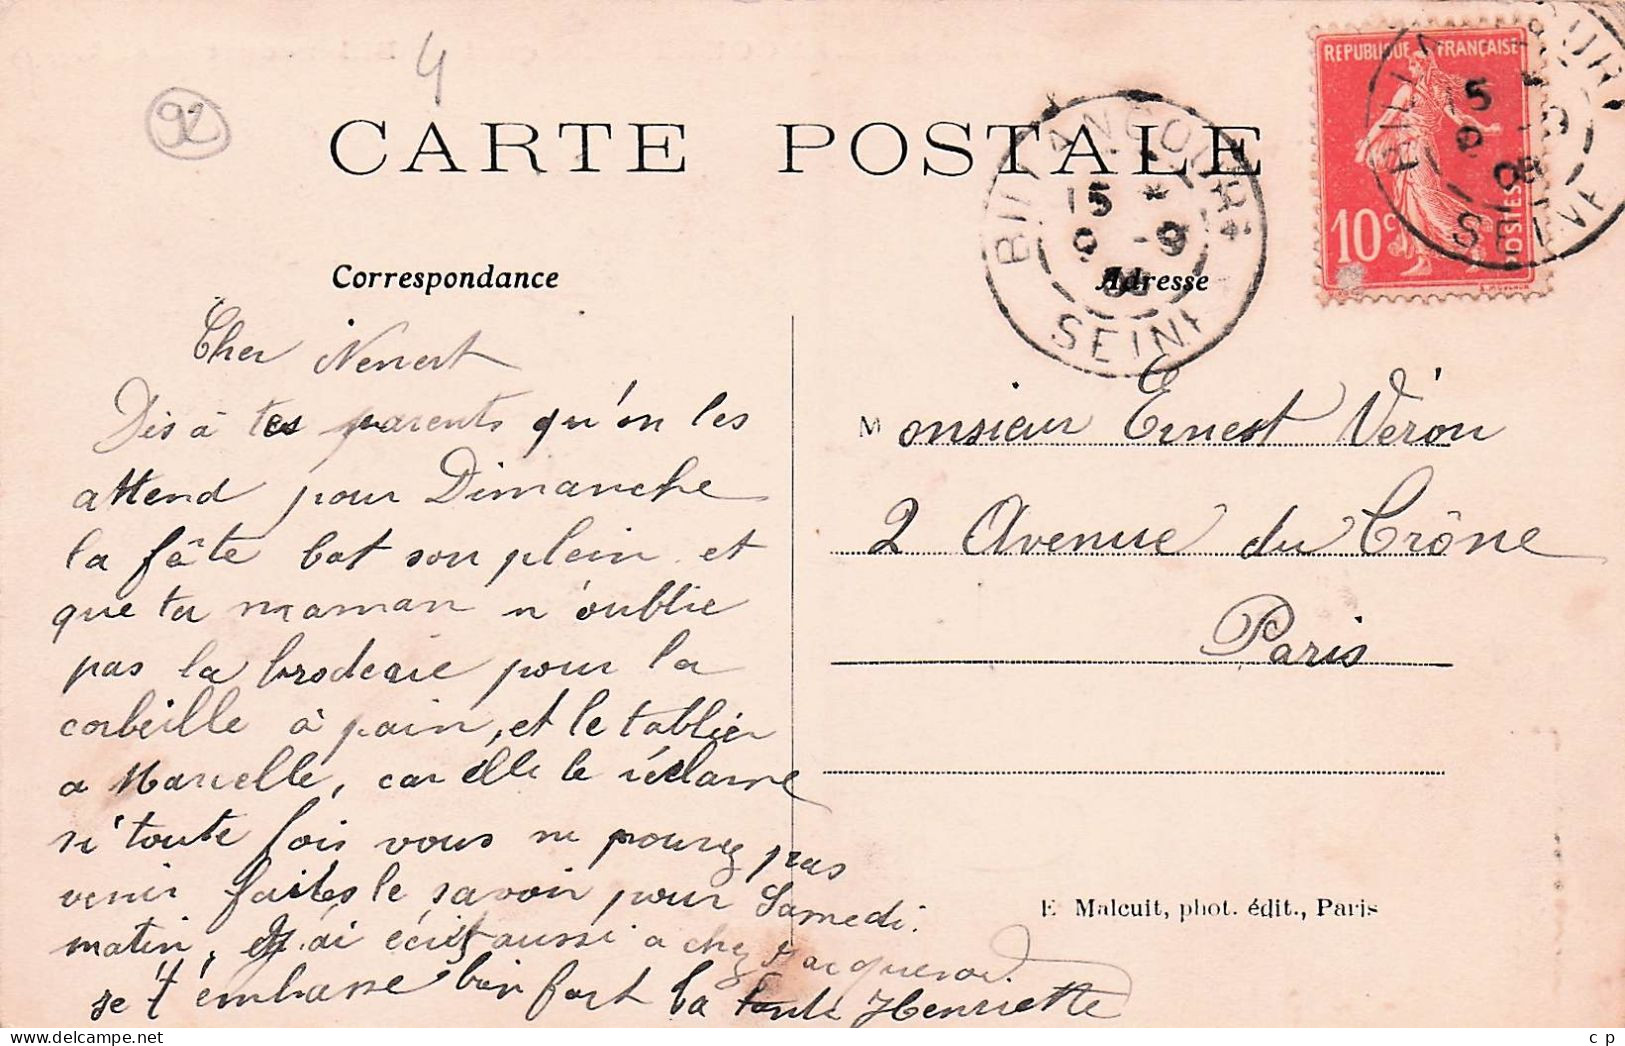 4
92
CARTE POSTALE
REPUBLIQUE FRANÇAISE
10c
POSTES
BILLANCOURT
15 *
9 -9
08
SEINE
BILLANCOURT
15 *
9 -9
08
SEINE
Correspondance
Adresse
Cher Nenert
Dis à tes parents qu'on les
attend pour Dimanche
la fête bat son plein et
que ta maman n'oublie
pas la broderie pour la
corbeille à pain, et le tablier
a Marcelle, car elle le réclame
si toute fois vous ne pourez pas
venir faites le savoir pour Samedi
matin, j'ai écrit aussi a chez Jacquenod.
je t'embrasse bien fort ta tante Henriette
Monsieur Ernest Véron
2 Avenue du Trône
Paris
E Malcuit, phot. édit., Paris
c p